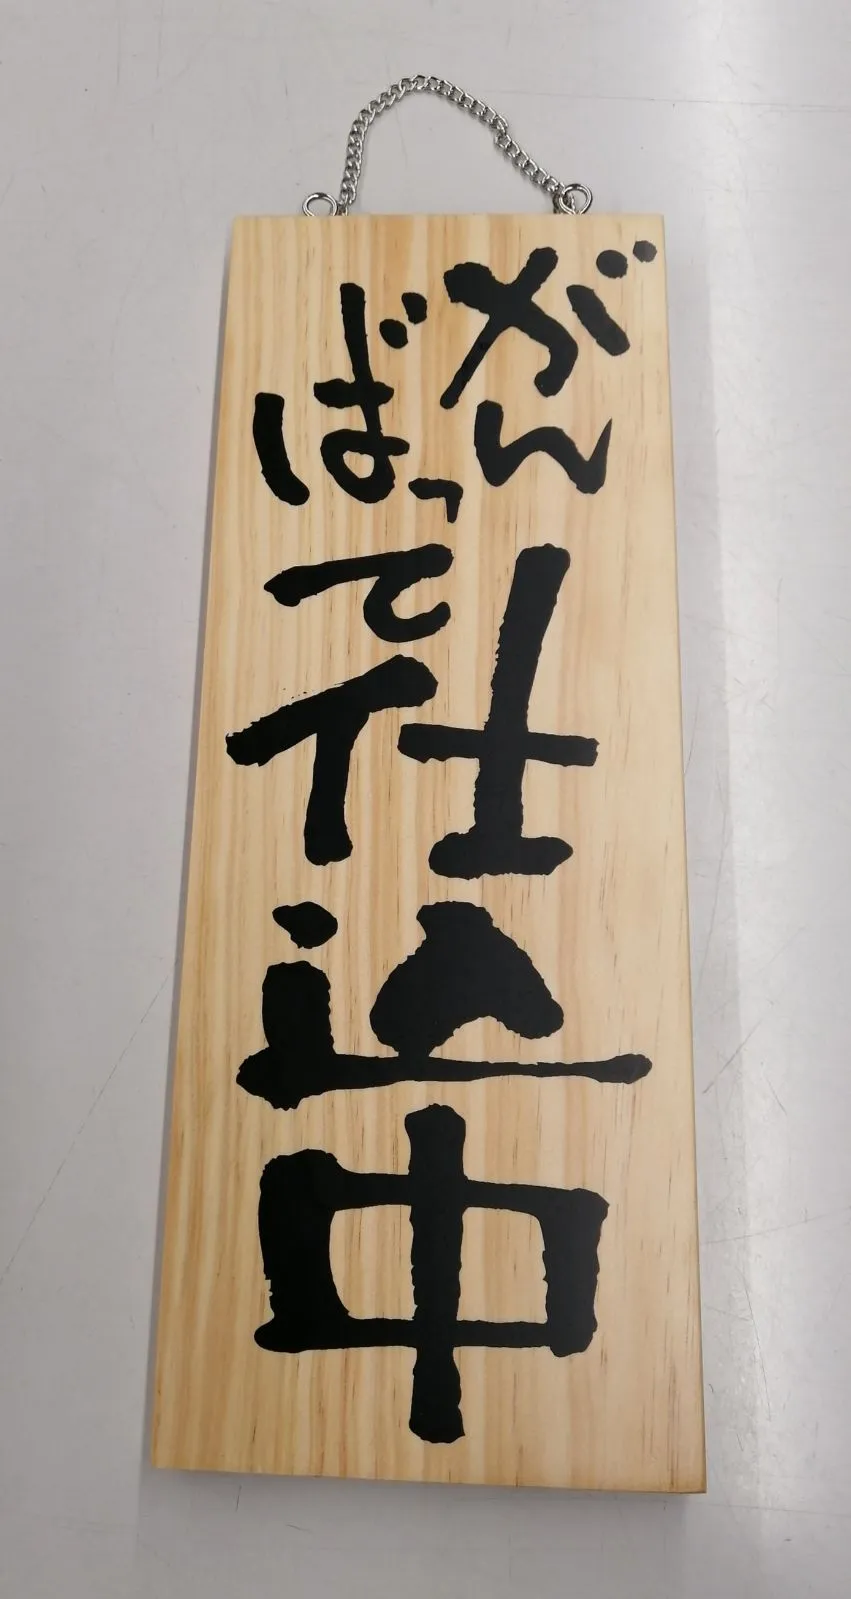 がん
ばって
仕込中